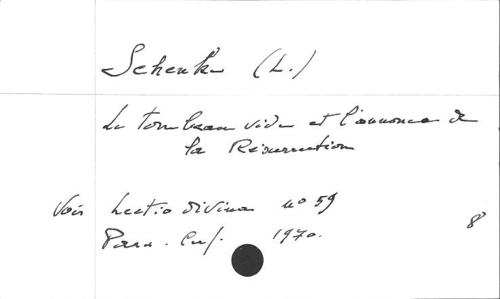 Schenke (L.)
Le tombeau vide et l'annonce de
la Résurrection
Voir Lectio divina no 59
Paris. Cerf. 1970.
8